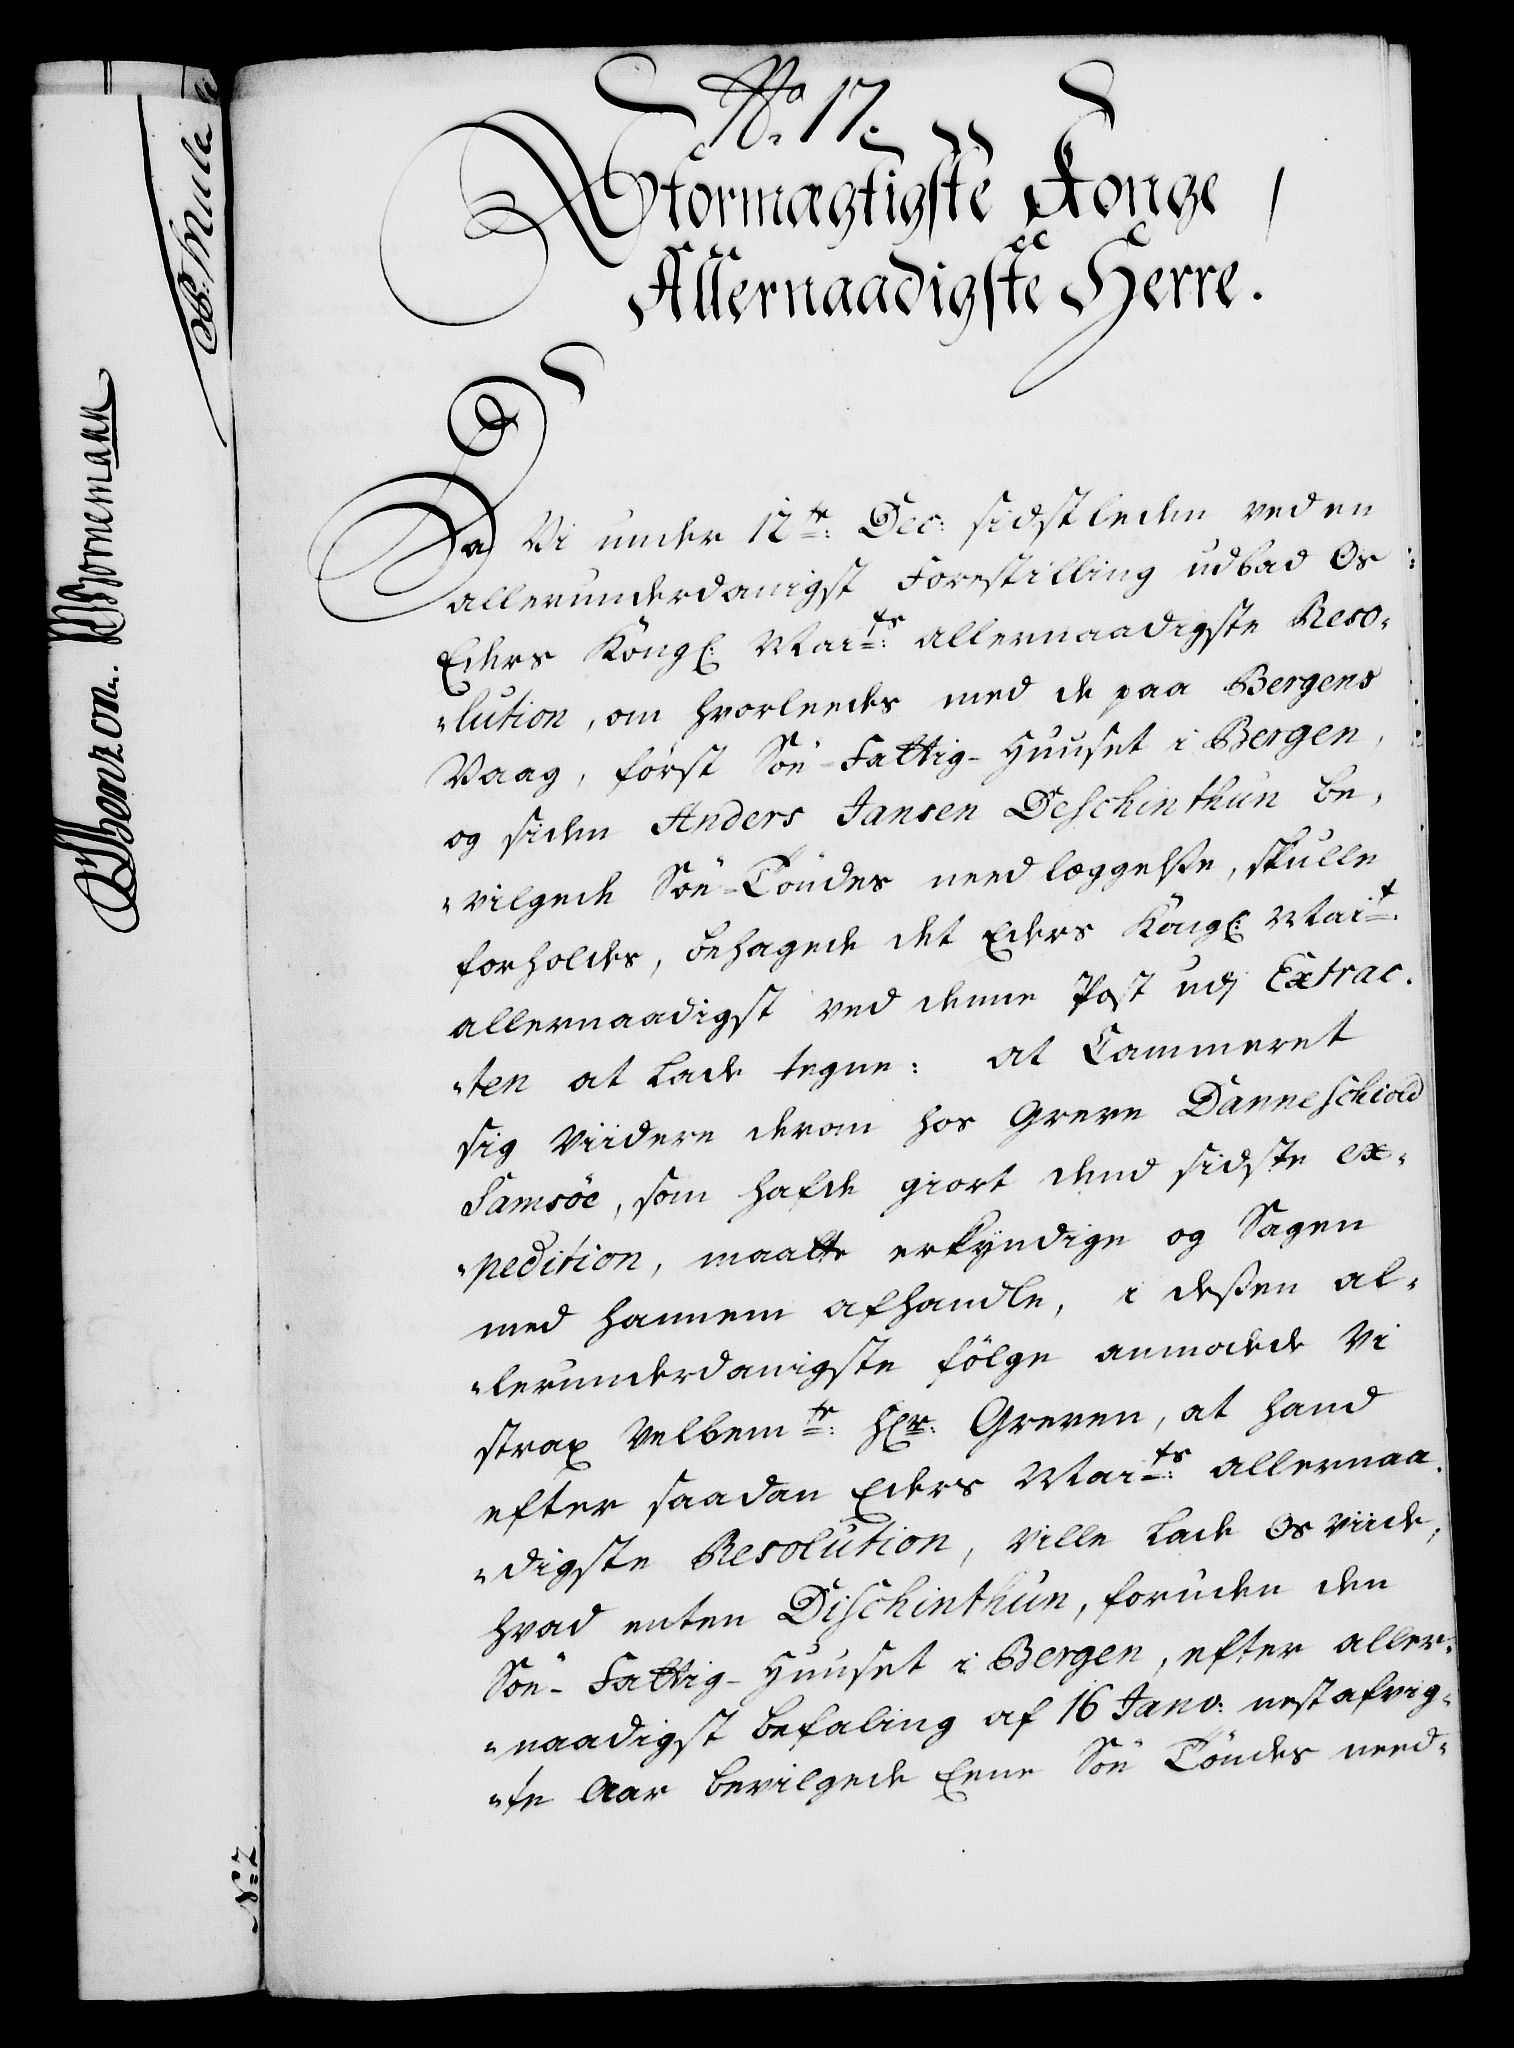 No. 17.
Stormægtigste Konge
Allernaadigste Herre.
Da Vi under 12te: Dec: sidstleden ved en
allerunderdanigst Forestilling udbad Os
Eders Kongl: Maits: allernaadigste Reso-
-lution, om hvorleedes med de paa Bergens
Vaag, først Søe-Fattig-Huuset i Bergen,
og siden Anders Jansen Deschinthun be-
-vilgede Søe-Tönders needlæggelse, skulle
forholdes, behagede det Eders Kongl: Mait:
allernaadigst ved denne Post udj Extrac-
-ten at lade tegne: at Cammeret
sig Viidere derom hos Greve Danneschiold
Samsöe, som hafde giort dend sidste ex-
-pedition, maatte erkyndige og Sagen
med hannem afhandle, i dessen al-
-lerunderdanigste følge anmodede Vi
strax Velbemte: Hr: Greven, at hand
efter saadan Eders Maits: allernaa-
-digste Resolution, ville lade Os viide,
hvad enten Dischinthun, foruden den
Søe-Fattig-Huuset i Bergen, efter aller-
-naadigst befaling af 16 Janv: nestafvig-
-te Aar bevilgede Eene Søe Tönders need-
Bornemann
B: Mule